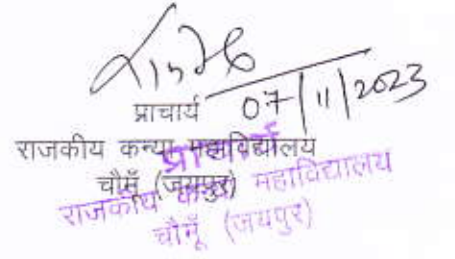 07/11/2023
प्राचार्य
राजकीय कन्या महाविद्यालय
चौमूँ (जयपुर)
प्राचार्य
राजकीय कन्या महाविद्यालय
चौमूँ (जयपुर)